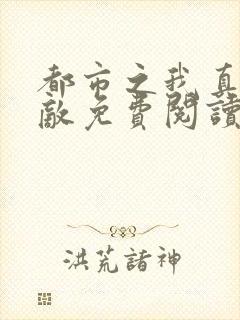 都市之我真
敵免費閱讀
洪荒諸神